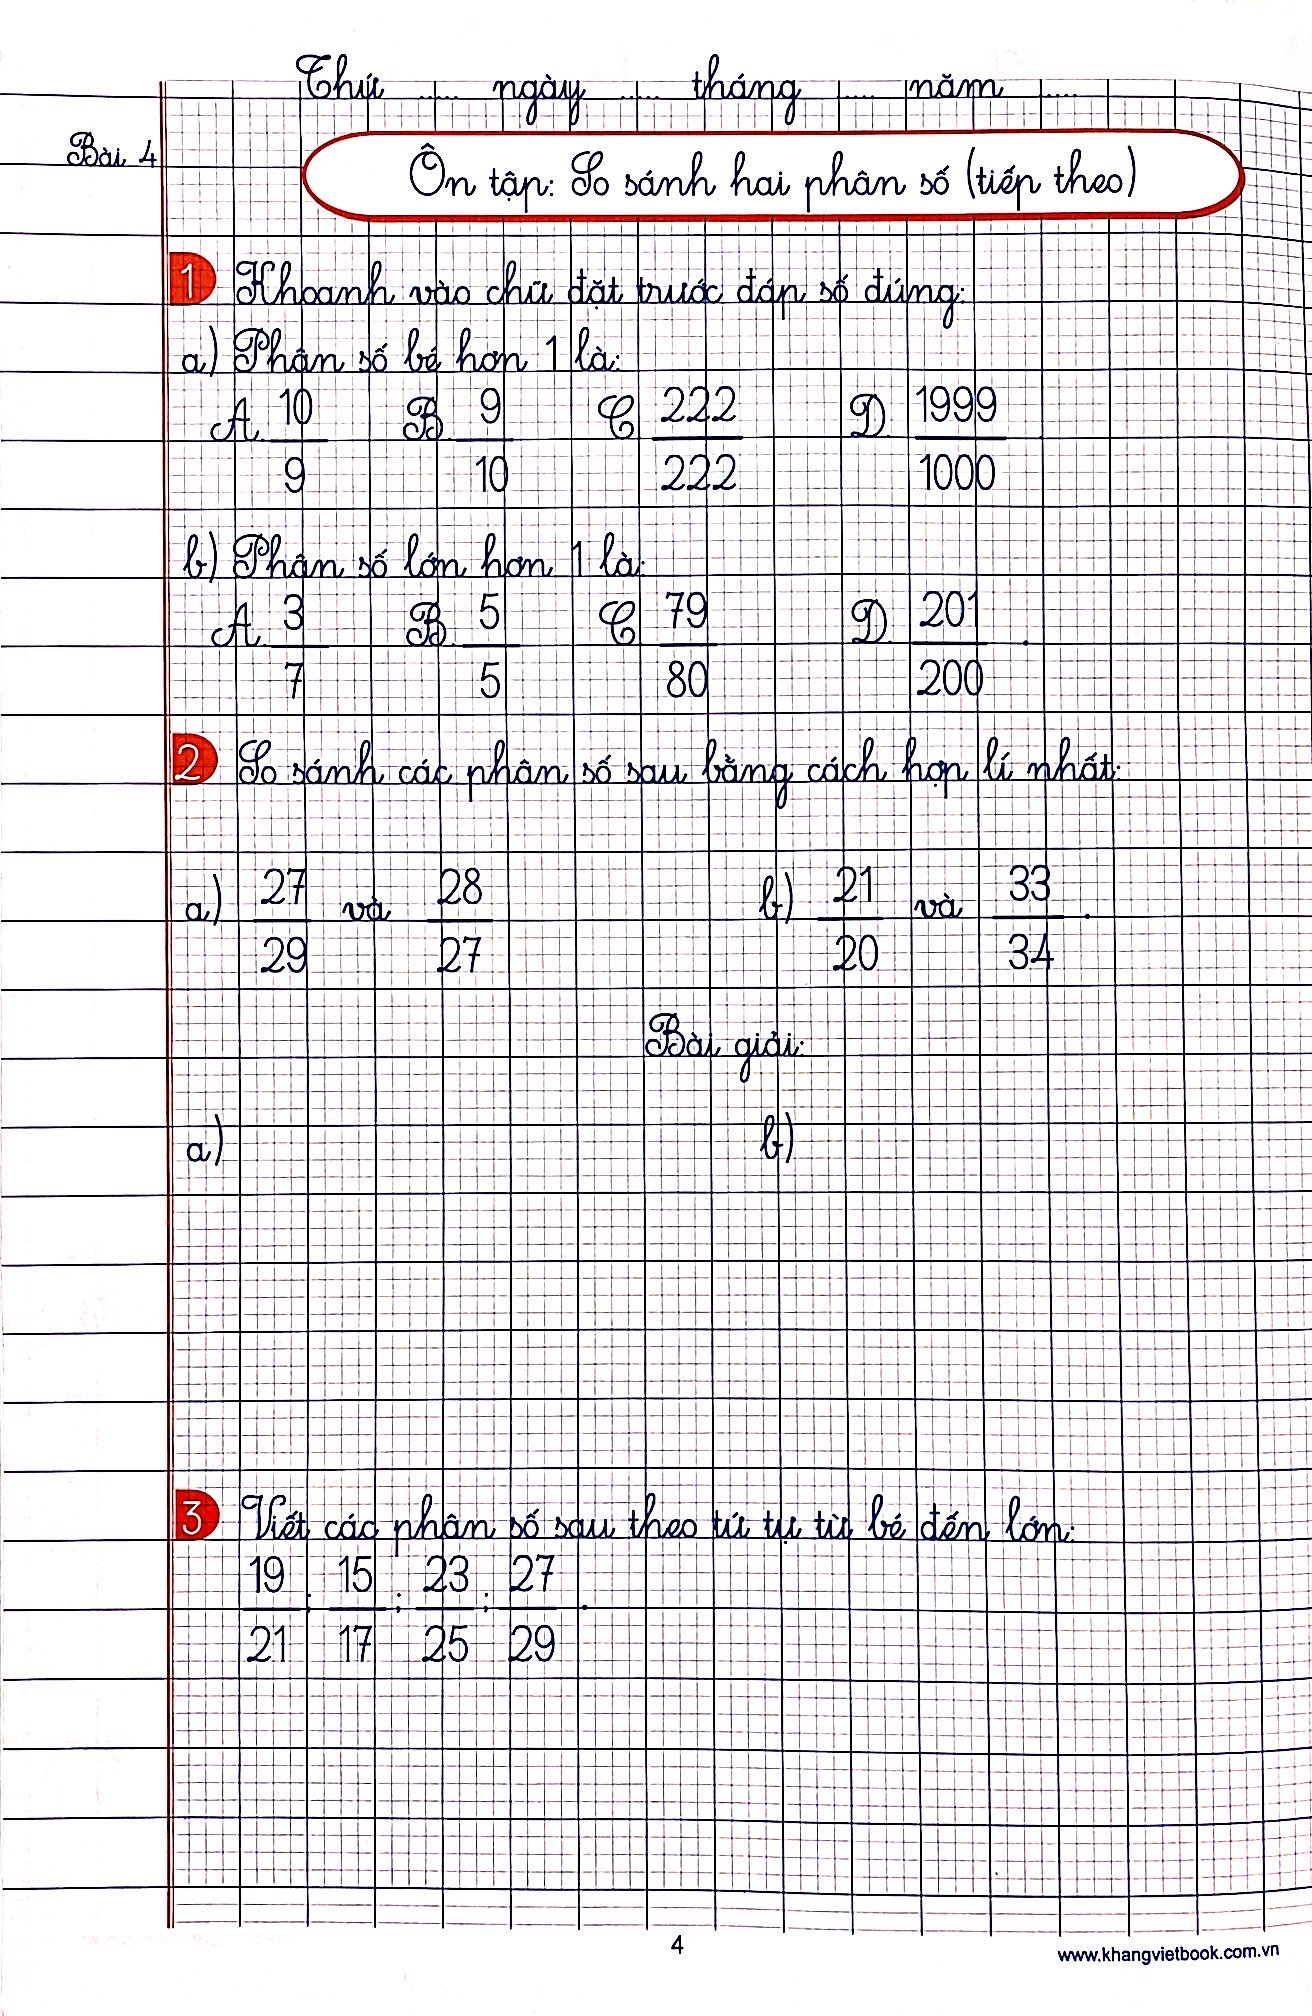 Thứ ..... ngày ..... tháng ..... năm .....
Bài 4
Ôn tập: So sánh hai phân số (tiếp theo)
1 Khoanh vào chữ đặt trước đáp số đúng:
a) Phân số bé hơn 1 là:
A. 10/9 B. 9/10 C. 222/222 D. 1999/1000.
b) Phân số lớn hơn 1 là:
A. 3/7 B. 5/5 C. 79/80 D. 201/200.
2 So sánh các phân số sau bằng cách hợp lí nhất:
a) 27/29 và 28/27 b) 21/20 và 33/34.
Bài giải:
a) b)
3 Viết các phân số sau theo tứ tự từ bé đến lớn:
19/21; 15/17; 23/25; 27/29.
4
www.khangvietbook.com.vn